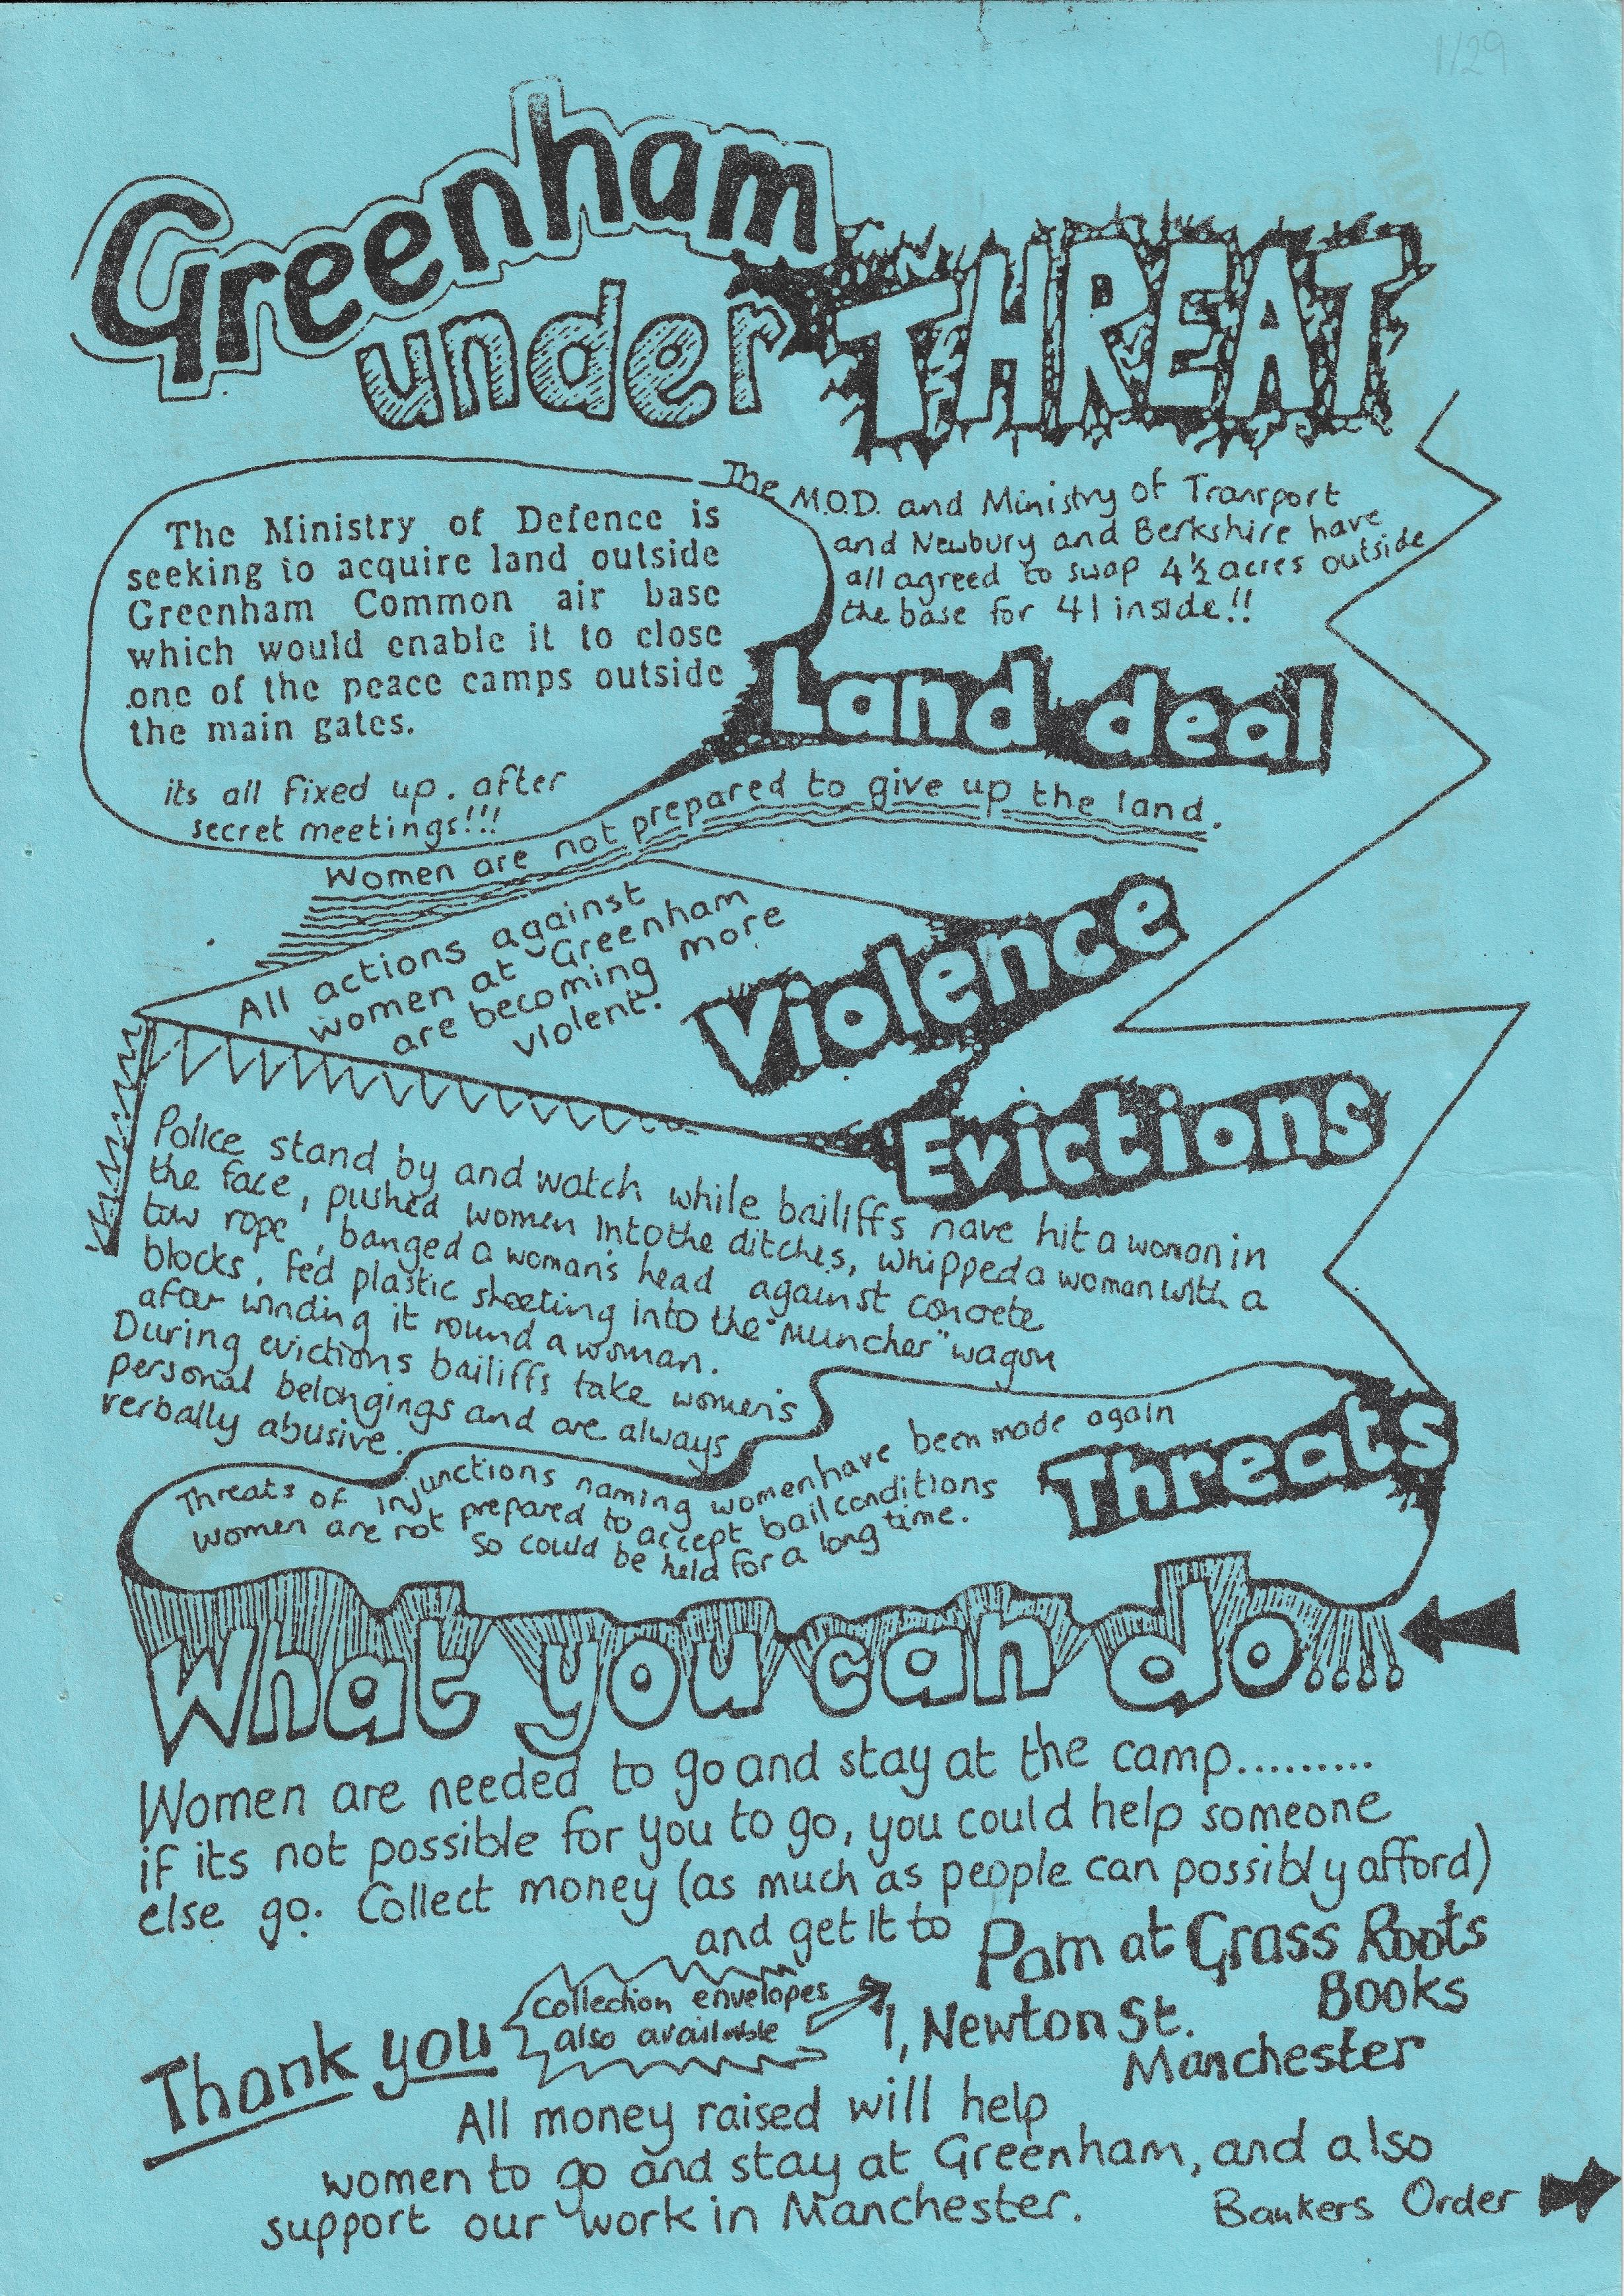 1/29
Greenham
under THREAT
The Ministry of Defence is
seeking to acquire land outside
Greenham Common air base
which would enable it to close
one of the peace camps outside
the main gates.
its all fixed up. after
secret meetings!!!
The M.O.D. and Ministry of Transport
and Newbury and Berkshire have
all agreed to swap 4½ acres outside
the base for 41 inside!!
Land deal
Women are not prepared to give up the land.
All actions against
women at Greenham
are becoming more
violent.
Violence
Evictions
Police stand by and watch while bailiffs have hit a woman in
the face, pushed women into the ditches, whipped a woman with a
tow rope, banged a woman's head against concrete
blocks, fed plastic sheeting into the "Muncher" wagon
after winding it round a woman.
During evictions bailiffs take women's
personal belongings and are always
verbally abusive.
Threats of injunctions naming women have been made again
Women are not prepared to accept bail conditions
So could be held for a long time.
Threats
What you can do....
Women are needed to go and stay at the camp.........
if its not possible for you to go, you could help someone
else go. Collect money (as much as people can possibly afford)
and get it to Pam at Grass Roots
Books
1, Newton St.
Manchester
collection envelopes
also available
Thank you
All money raised will help
women to go and stay at Greenham, and also
support our work in Manchester.
Bankers Order